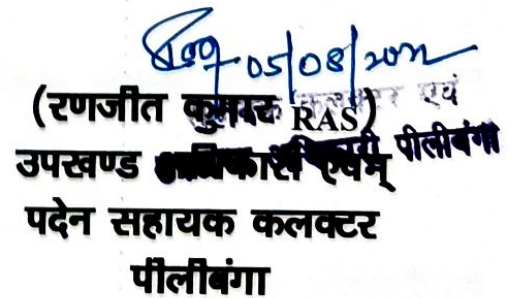 05/08/2022
(रणजीत कुमार RAS)
उपखण्ड अधिकारी एवम्
पदेन सहायक कलक्टर
पीलीबंगा
एवं
पीलीबंगा